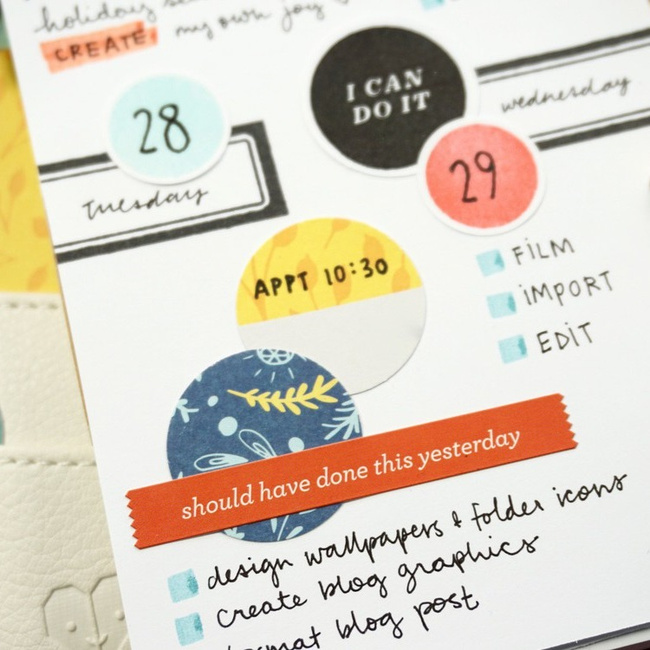 holiday
my own joy
CREATE
I CAN
DO IT
wednesday
28
29
Tuesday
APPT 10:30
FILM
IMPORT
EDIT
should have done this yesterday
design wallpapers & folder icons
create blog graphics
blog post